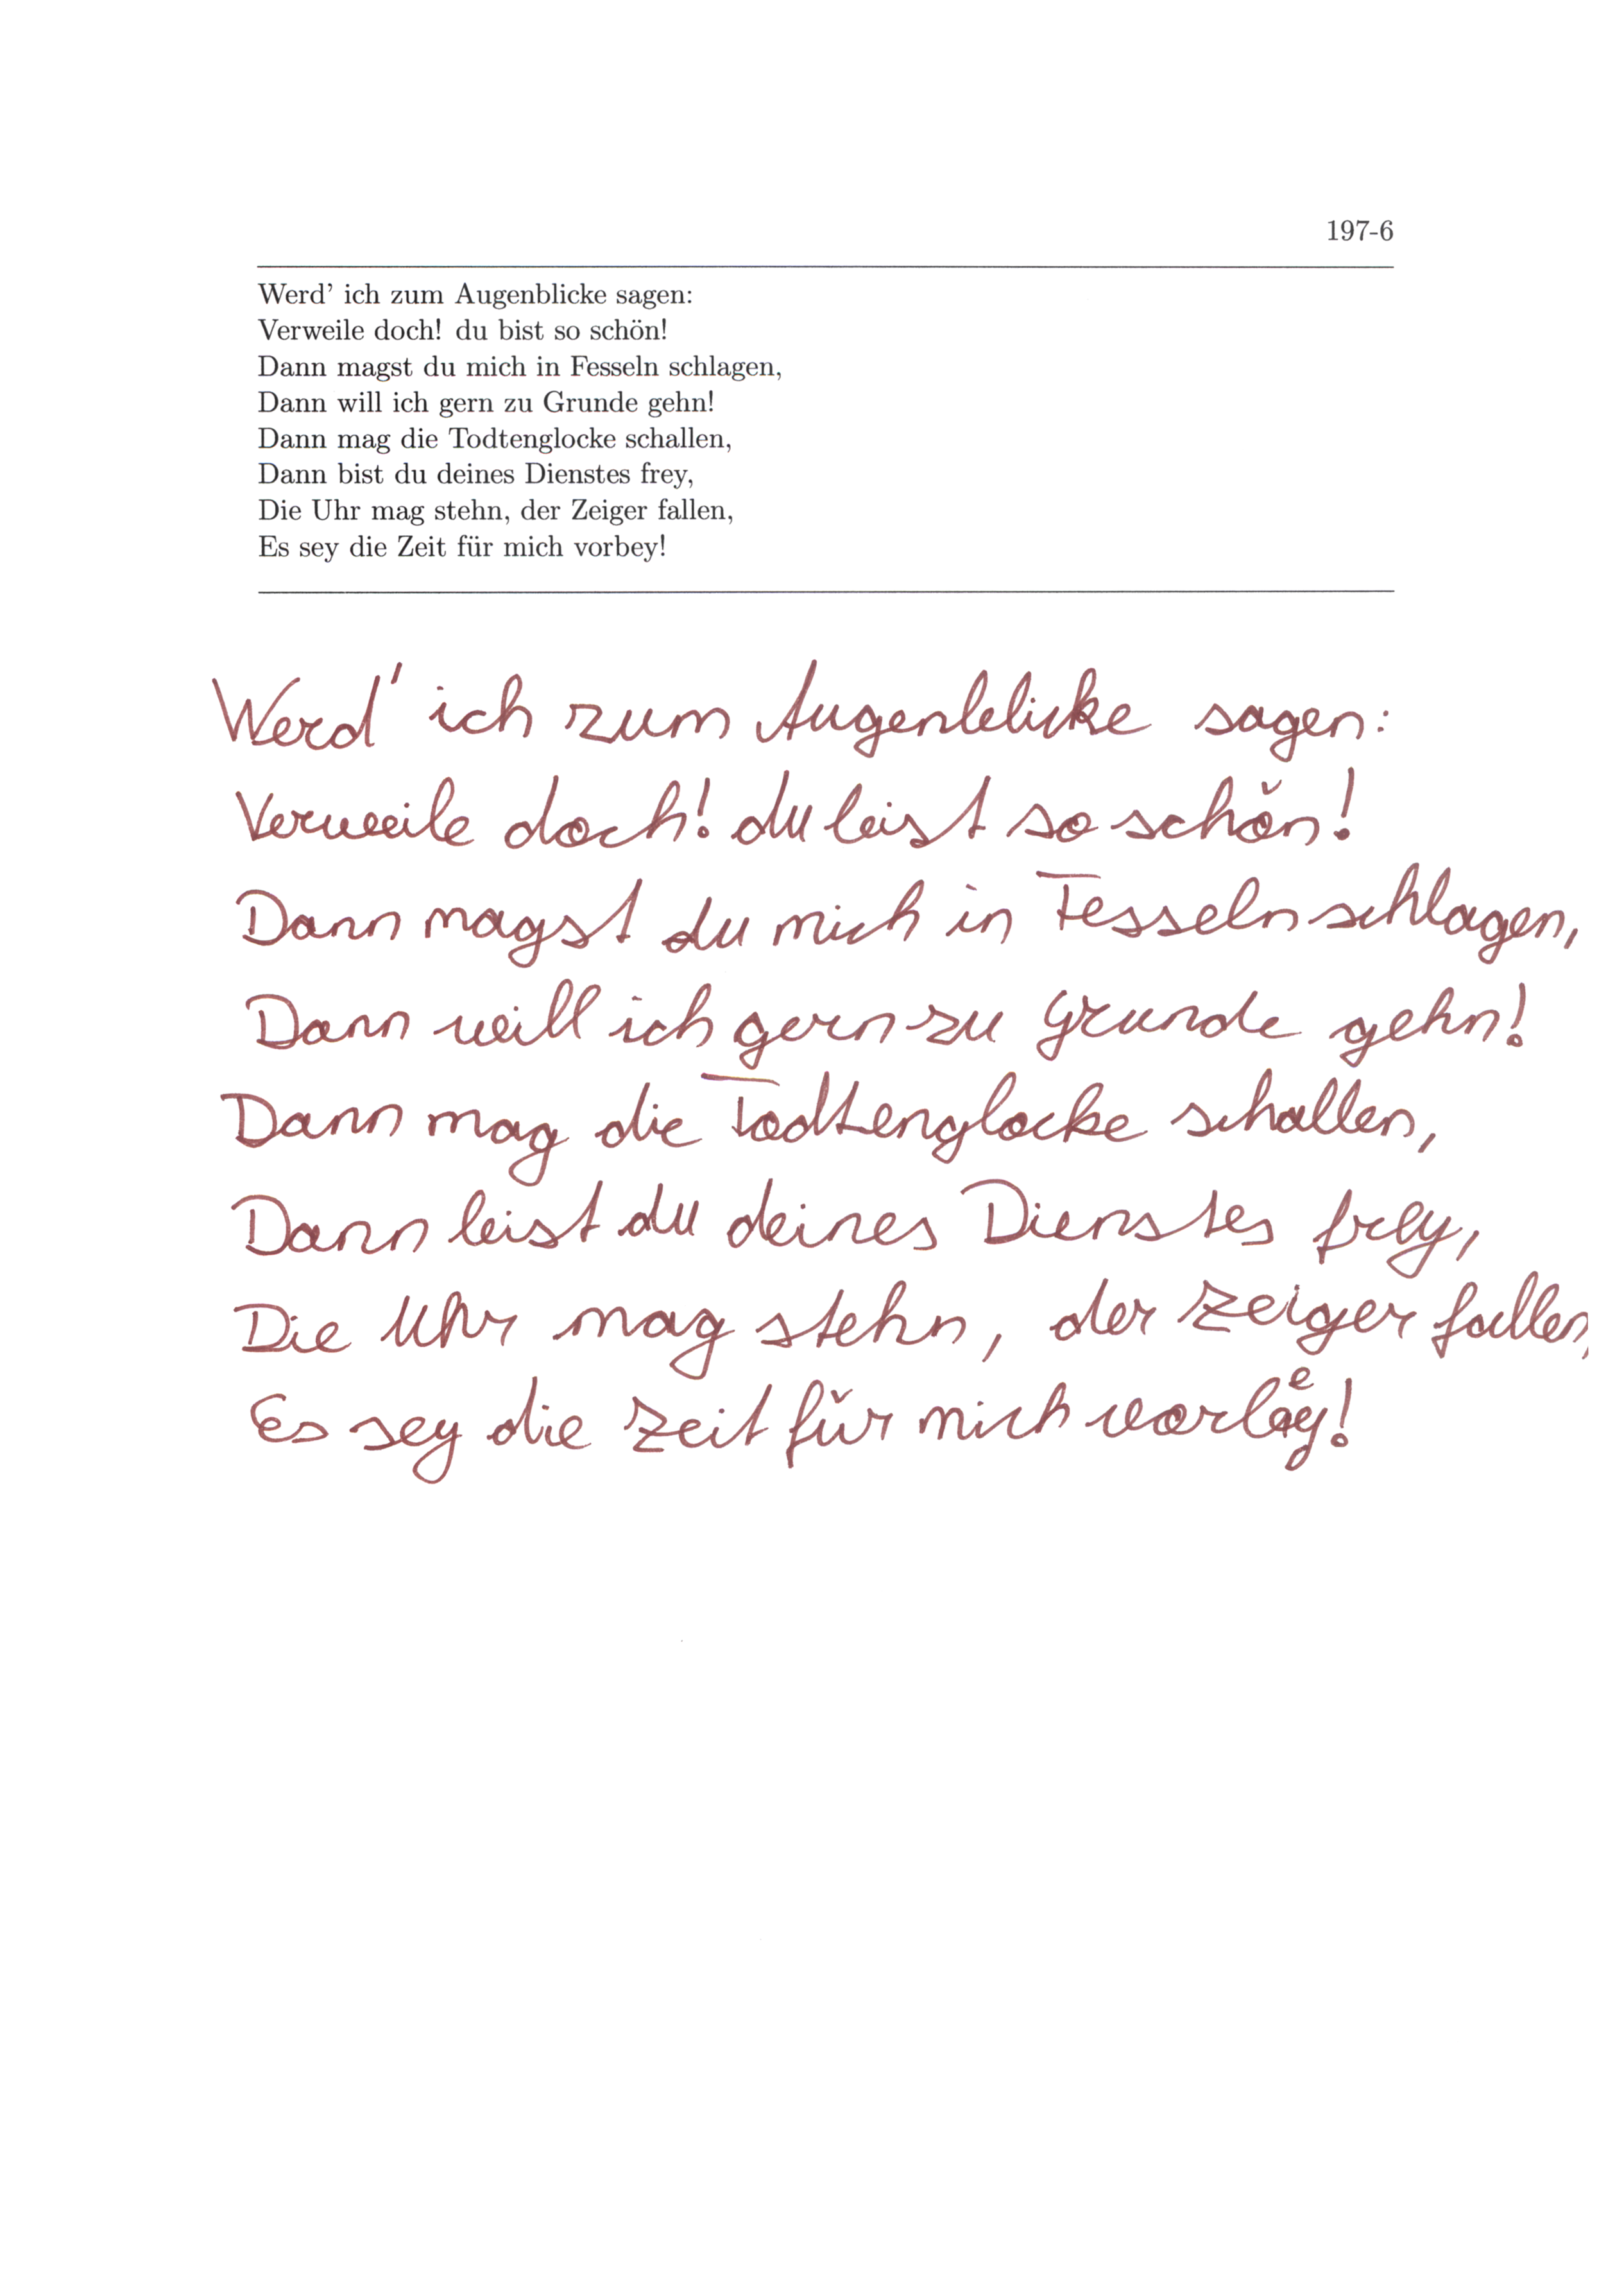 197-6
Werd' ich zum Augenblicke sagen:
Verweile doch! du bist so schön!
Dann magst du mich in Fesseln schlagen,
Dann will ich gern zu Grunde gehn!
Dann mag die Todtenglocke schallen,
Dann bist du deines Dienstes frey,
Die Uhr mag stehn, der Zeiger fallen,
Es sey die Zeit für mich vorbey!
Werd' ich zum Augenblicke sagen:
Verweile doch! du bist so schön!
Dann magst du mich in Fesseln schlagen,
Dann will ich gern zu Grunde gehn!
Dann mag die Todtenglocke schallen,
Dann bist du deines Dienstes frey,
Die Uhr mag stehn, der Zeiger fallen,
Es sey die Zeit für mich vorbey!